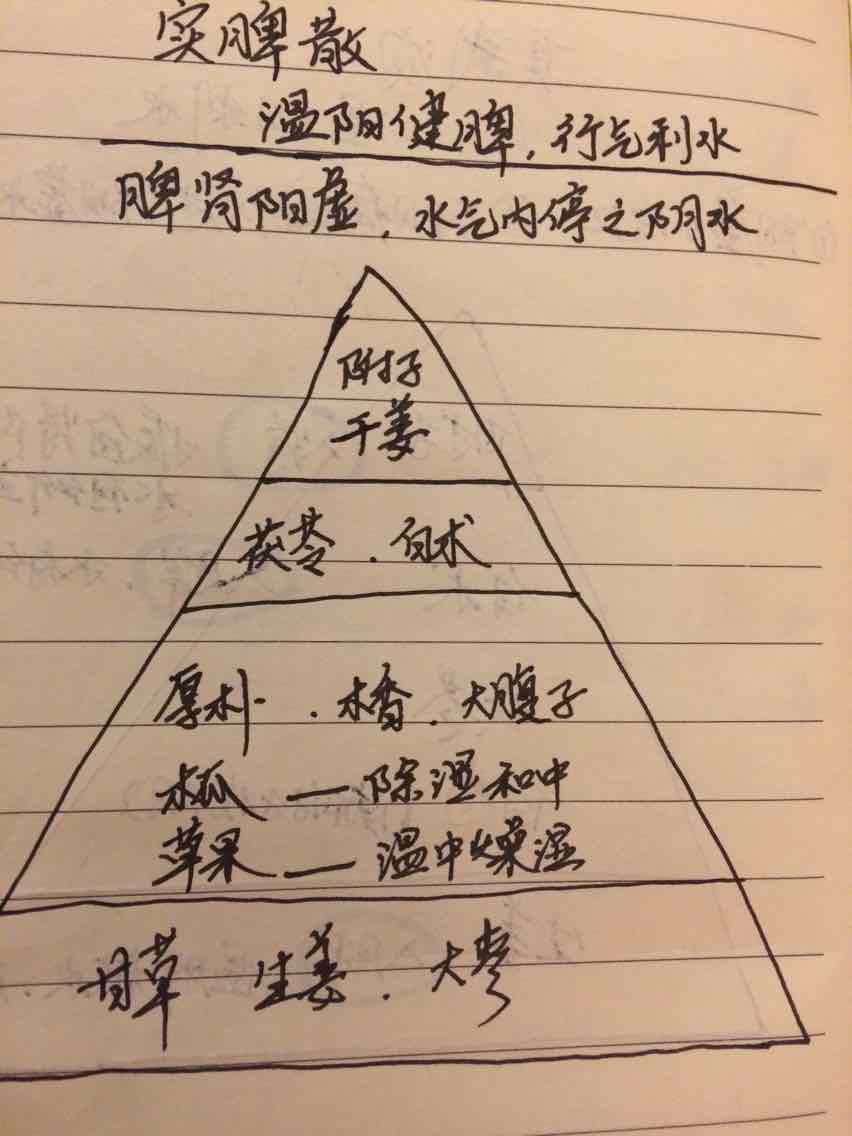 实脾散
温阳健脾,行气利水
脾肾阳虚,水气内停之阴水
附子
干姜
茯苓.白术
厚朴.木香.大腹子
木瓜——除湿和中
草果——温中燥湿
甘草 生姜.大枣